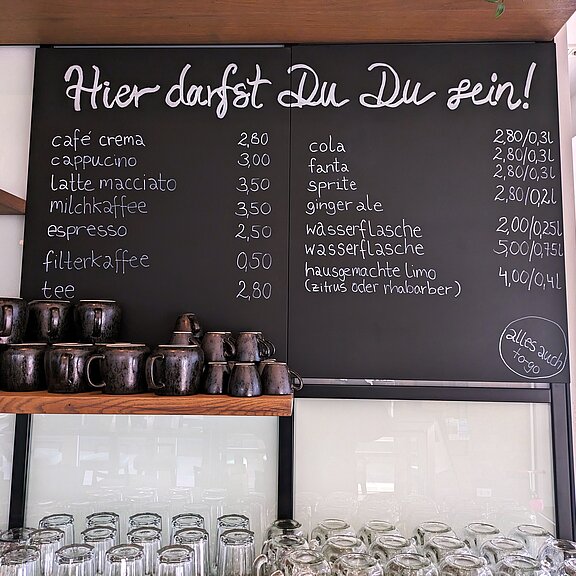 Hier darfst Du Du sein!
café crema 2,80
cappucino 3,00
latte macciato 3,50
milchkaffee 3,50
espresso 2,50
filterkaffee 0,50
tee 2,80
cola 2,80/0,3l
fanta 2,80/0,3l
sprite 2,80/0,3l
ginger ale 2,80/0,2l
wasserflasche 2,00/0,25l
wasserflasche 5,00/0,75l
hausgemachte limo 4,00/0,4l
(zitrus oder rhabarber)
alles auch
to-go